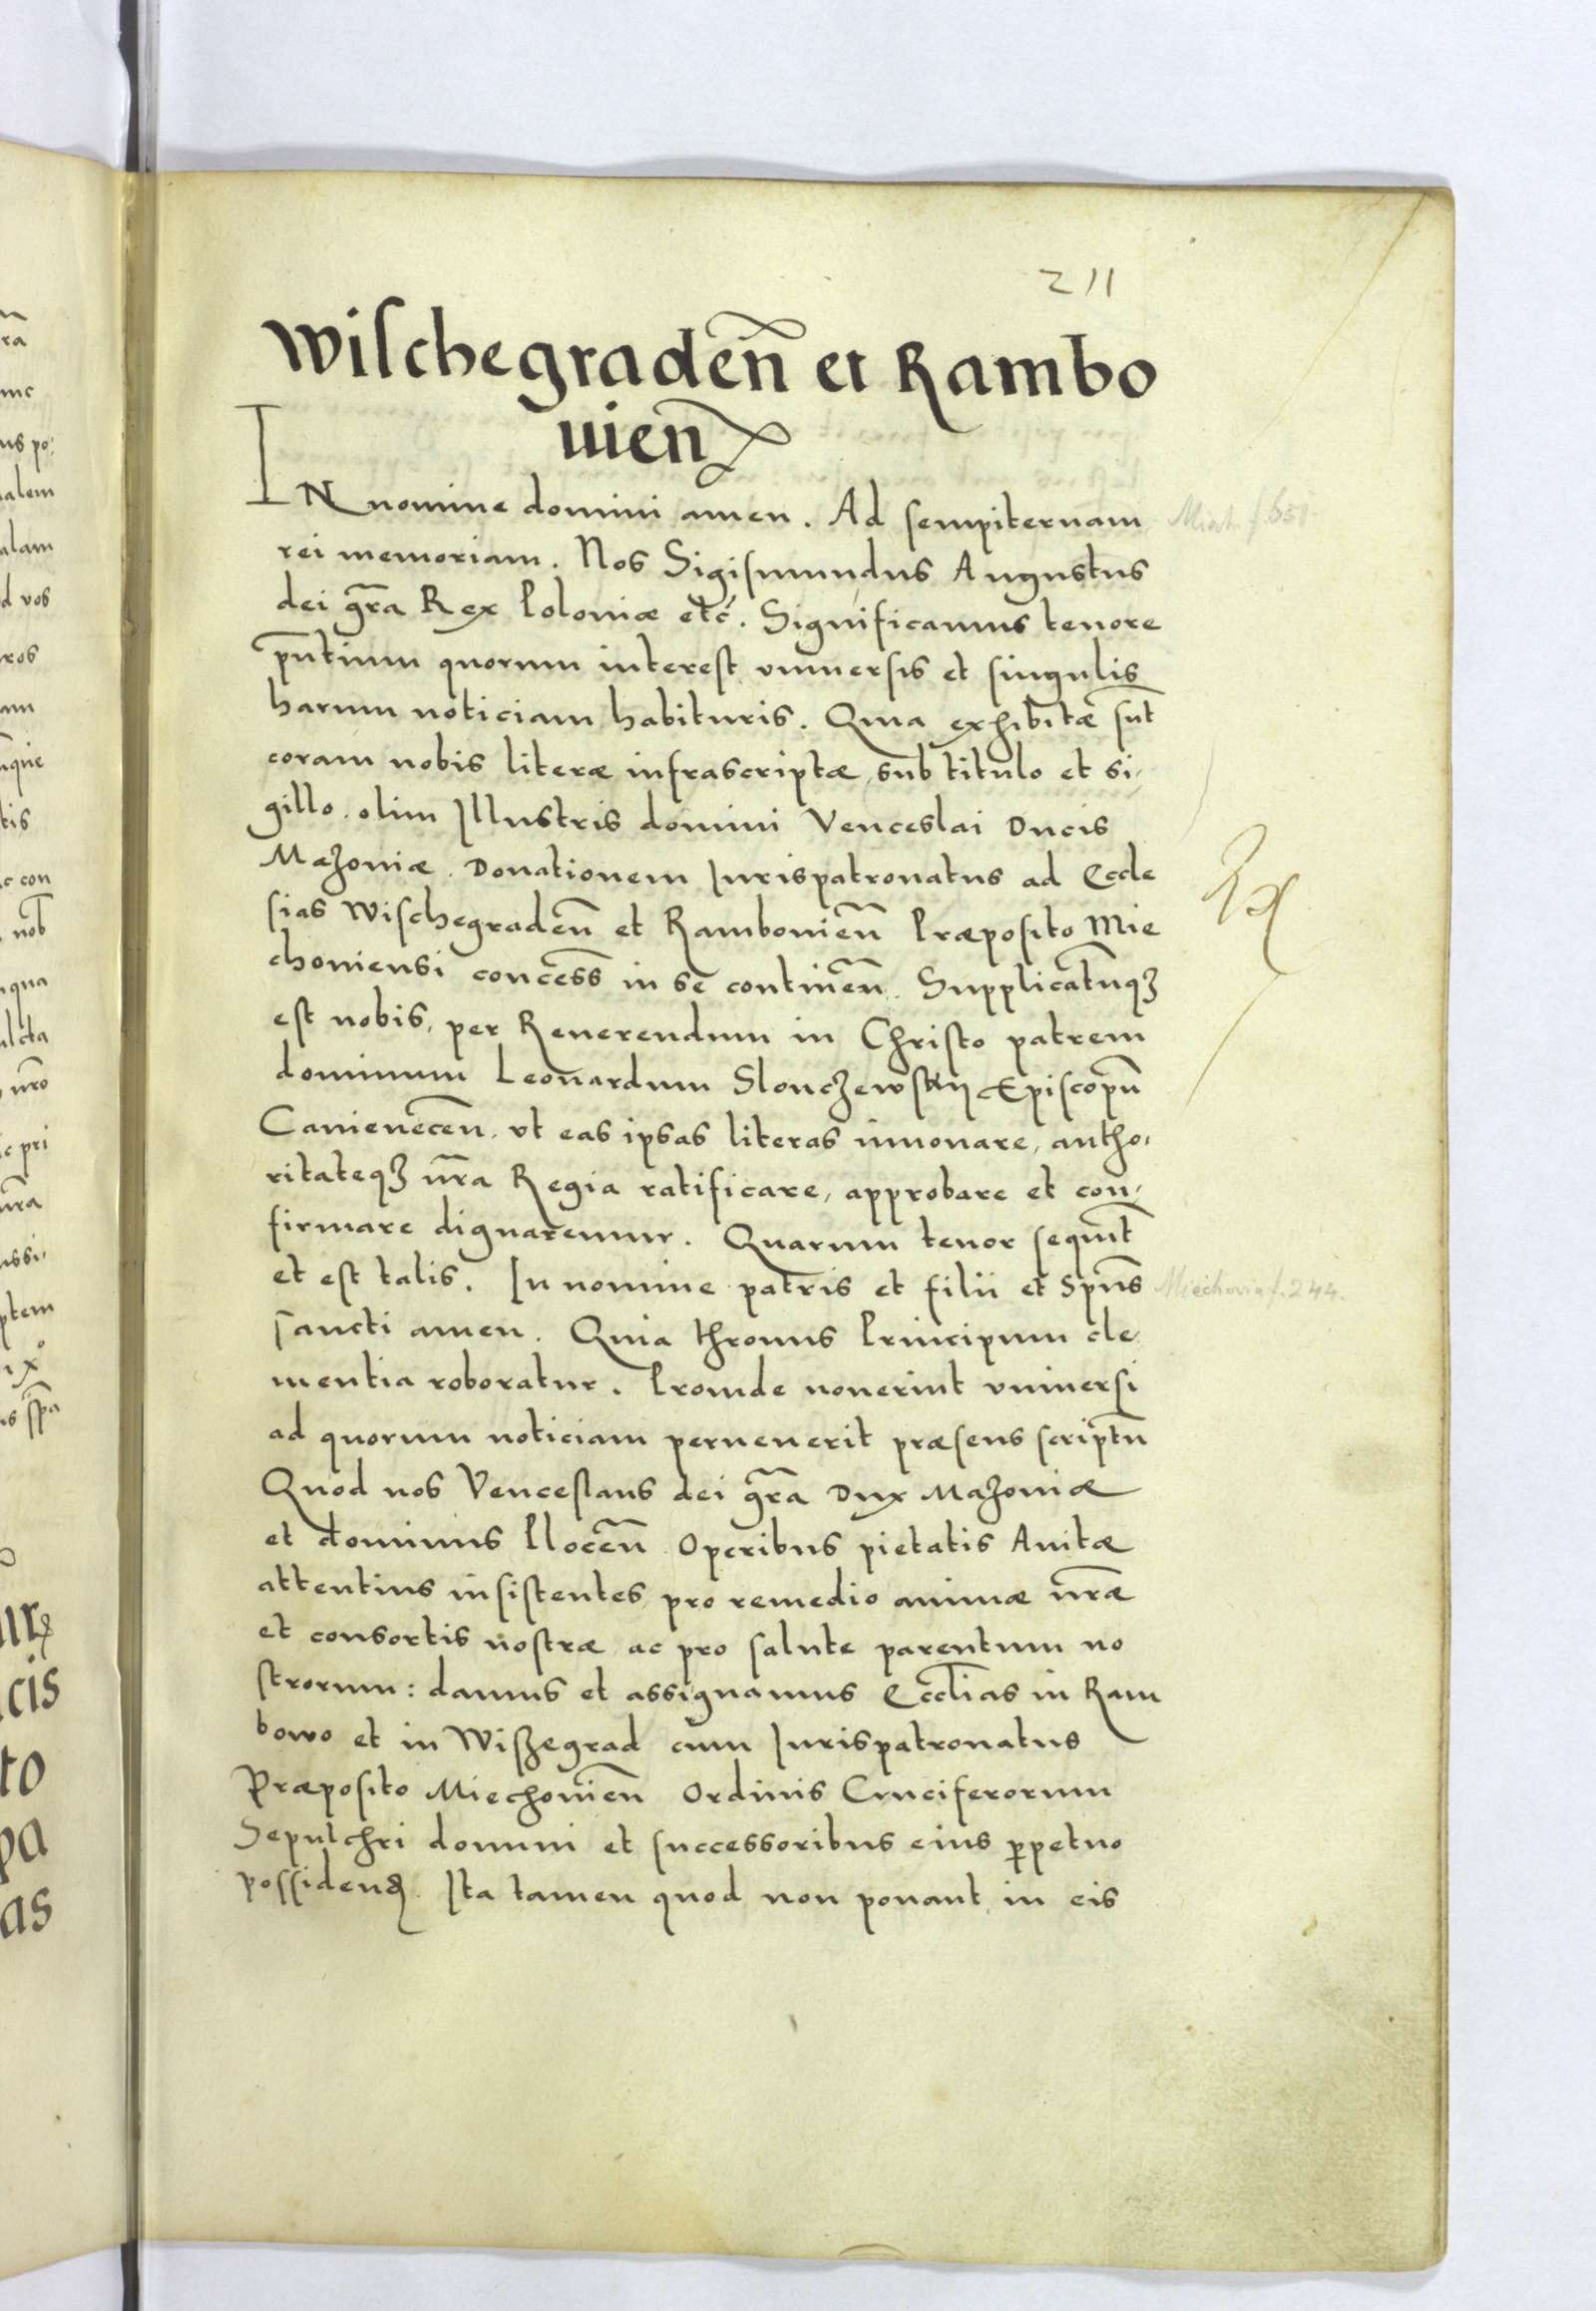 211
Wischegradeñ et Rambo
uien
IN nomine domini amen. Ad sempiternam
rei memoriam. Nos Sigismundus Augustus
dei gr̃a Rex Poloniæ etc̃. Significamus tenore
pñtium quorum interest vniuersis et singulis
harum noticiam habituris. Quia exhibitæ sũt
coram nobis literæ infrascriptæ sub titulo et si,
gillo olim Illustris domini Venceslai Ducis
Mazouiæ. Donationem Iurispatronatus ad Eccle
sias Wischegradeñ et Rambouieñ Præposito Mie
chouiensi concess̃ in se contineñ. Supplicatũqꝫ
est nobis, per Reuerendum in Christo patrem
dominum Leonardum Slonczewskij Episcopũ
Camieneceñ. vt eas ipsas literas innouare, autho,
ritateqꝫ nr̃a Regia ratificare, approbare et con,
firmare dignaremur. Quarum tenor sequit̃
et est talis. In nomine patris et filii et Spũs
sancti amen. Quia thronus Principum cle
mentia roboratur. Proinde nouerint vniuersi
ad quorum noticiam peruenerit præsens scriptũ
Quod nos Venceslaus dei gr̃a Dux Mazouiæ
et dominus Ploceñ Operibus pietatis Auitæ
attentius insistentes pro remedio animæ nr̃æ
et consortis nostræ ac pro salute parentum no
strorum: damus et assignamus Eccl̃ias in Ram
bowo et in Wiszegrad cum Iurispatronatus
Præposito Miechouieñ Ordinis Cruciferorum
Sepulchri domini et successoribus eius ꝑpetuo
possidenꝭ. Ita tamen quod non ponant in eis
Miech. f. 651
Miechovia f. 244.